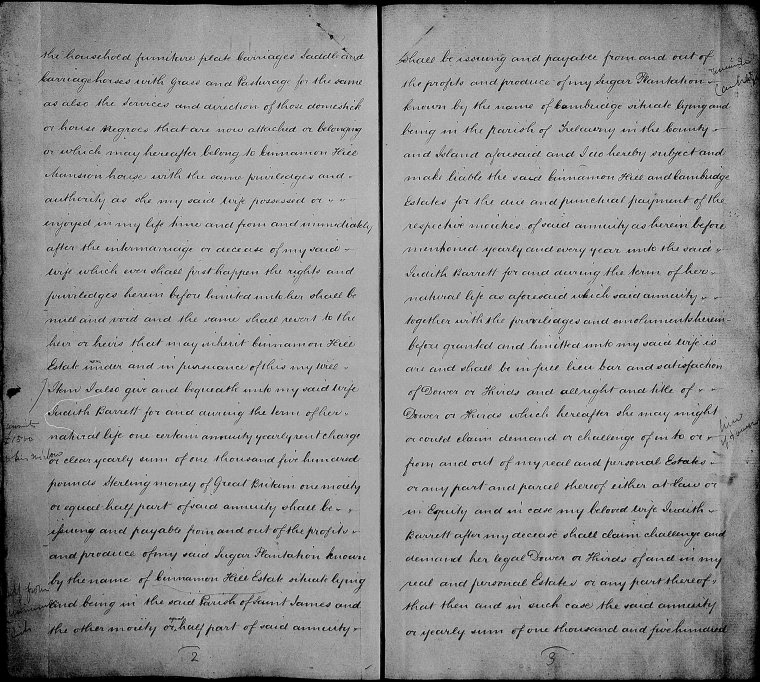 the household furniture plate Carriages Saddle and
Carriage horses with Grass and Pasturage for the same
as also the services and direction of those domestick
or house Negroes that are now attached or belonging
or which may hereafter belong to Cinnamon Hill
Mansion house with the same priviledges and
authority as she my said wife possessed or
enjoyed in my life time and from and immediately
after the intermarriage or decease of my said
wife which ever shall first happen the rights and
priviledges herein before limited unto her shall be
null and void and the same shall revert to the
heir or heirs that may inherit Cinnamon Hill
Estate under and in pursuance of this my Will
Item I also give and bequeath unto my said wife
Judith Barrett for and during the term of her
natural life one certain annuity yearly rent charge
or clear yearly sum of one thousand five hundred
pounds Sterling money of Great Britain one moiety
or equal half part of said annuity shall be
issuing and payable from and out of the profits
and produce of my said Sugar Plantation known
by the name of Cinnamon Hill Estate situate lying
and being in the said Parish of Saint James and
the other moiety or equal half part of said annuity
£1500
2
shall be issuing and payable from and out of
the profits and produce of my Sugar Plantation
known by the name of Cambridge situate lying and
being in the parish of Trelawny in the County
and Island aforesaid and I do hereby subject and
make liable the said Cinnamon Hill and Cambridge
Estates for the due and punctual payment of the
respective moieties of said annuity as herein before
mentioned yearly and every year unto the said
Judith Barrett for and during the term of her
natural life as aforesaid which said annuity
together with the priviledges and emoluments herein
before granted and limitted unto my said wife is
are and shall be in full lieu bar and satisfaction
of Dower or Thirds and all right and title of
Dower or Thirds which hereafter she may might
or could claim demand or challenge of in to or
from and out of my real and personal Estates
or any part and parcel thereof either at law or
in Equity and in case my beloved wife Judith
Barrett after my decease shall claim challenge and
demand her legal Dower or Thirds of and in my
real and personal Estates or any part thereof
that then and in such case the said annuity
or yearly sum of one thousand and five hundred
3